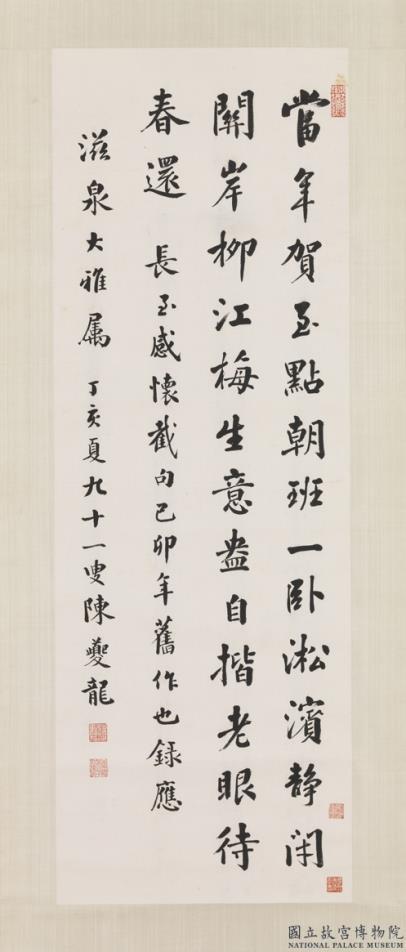 當年賀至點朝班一卧淞濱靜閉
關岸柳江梅生意盎自揩老眼待
春還 長至感懷截句己卯年舊作也錄應
滋泉大雅属 丁亥夏九十一叟陳夔龍
國立故宮博物院
NATIONAL PALACE MUSEUM